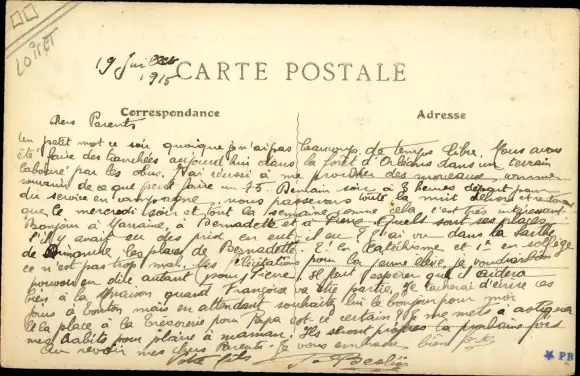 LOIRET
19 Juillet
1915
CARTE POSTALE
Correspondance
Adresse
Chers Parents
Un petit mot ce soir quoique je n'ai pas beaucoup de temps libre. Nous avons
été faire des tranchées aujourd'hui dans la forêt d'Orléans dans un terrain
labouré par les obus. J'ai réussi à me procurer des morceaux comme
souvenir de ce que peut faire un 75. Demain soir à 8 heures départ pour
du service en campagne, nous passerons toute la nuit dehors et
que le mercredi soir et tout la semaine comme cela c'est très intéressant
Bonjour à Marraine, à Bernadette et à Pierre. Quels sont ses places
s'il y avait eu des prix en eut-il eu? J'ai vu dans la
de dimanche les places de Bernadette: 2e en Catéchisme et 1re en solfège
ce n'est pas trop mal. Mes félicitations pour la jeune élève, je voudrais bien
pouvoir en dire autant pour Pierre. Il faut espérer que il aidera
bien à la maison quand Françoise va être partie. Je tacherai d'écrire ces
jours à tonton mais en attendant souhaite lui le bonjour pour moi
Et la place à la Trésorerie pour Papa est-ce certain? Je me mets à astiquer
mes habits pour plaire à maman. Ils seront propres la prochaine fois
Au revoir mes chers Parents. Je vous embrasse bien fort
Votre fils J.
PB